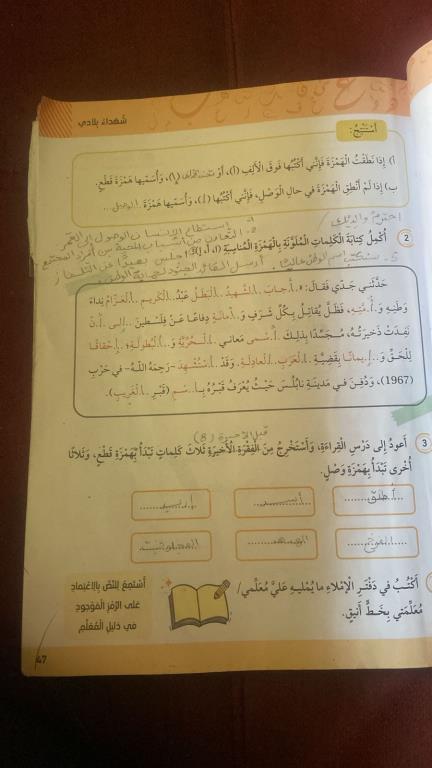 شهداء بلادي
أستنتج:
أ) إذا نطقتُ الهمزةَ فإنّني أكتبُها فوقَ الألفِ (أ)، أوْ تحتها (إ)، وأسمّيها همزةَ قطعٍ.
ب) إذا لمْ أنطقِ الهمزةَ في حالِ الوصلِ، فإنّني أكتبُها (ا)، وأسمّيها همزةَ الوصل
احترم والديك
استطاع الإنسان الوصول إلى القمر
التعاون من أسباب المحبة بين أفراد المجتمع
2 أكملُ كتابةَ الكلماتِ الملوّنةِ بالهمزةِ المناسبةِ (ا، أ، إ):
اجلس بعيدًا عن التلفاز
حدّثني جدّي فقالَ: أجابَ الشّهيدُ البطلُ عبدُ الكريمِ العزّامُ نداءَ
وطنِهِ وأمّتِهِ، فظلَّ يُقاتِلُ بكلِّ شرفٍ وأمانةٍ دفاعًا عنْ فلسطينَ إلى أنْ
نفدتْ ذخيرتُهُ، مُجسِّدًا بذلكَ أسمى معاني الحرّيّةِ والبطولةِ؛ إحقاقًا
للحقِّ وإيمانًا بقضيّةِ العربِ العادلةِ. وقدْ استُشهدَ -رحمهُ اللهُ- في حربِ
(1967)، ودُفِنَ في مدينةِ نابلُسَ حيثُ يُعرفُ قبرُهُ باسمِ (قبرِ الغريبِ).
قبل الأخيرة (8)
3 أعودُ إلى درسِ القراءةِ، وأستخرجُ منَ الفقرةِ الأخيرةِ ثلاثَ كلماتٍ تبدأُ بهمزةِ قطعٍ، وثلاثًا
أُخرى تبدأُ بهمزةِ وصلٍ.
أطلق
أكتبُ في دفترِ الإملاءِ ما يُمليهِ عليَّ مُعلّمي/
مُعلّمتي بخطٍّ أنيقٍ.
أستمعُ للنّصِّ بالاعتمادِ
على الرّمزِ الموجودِ
في دليلِ المُعلّمِ
47